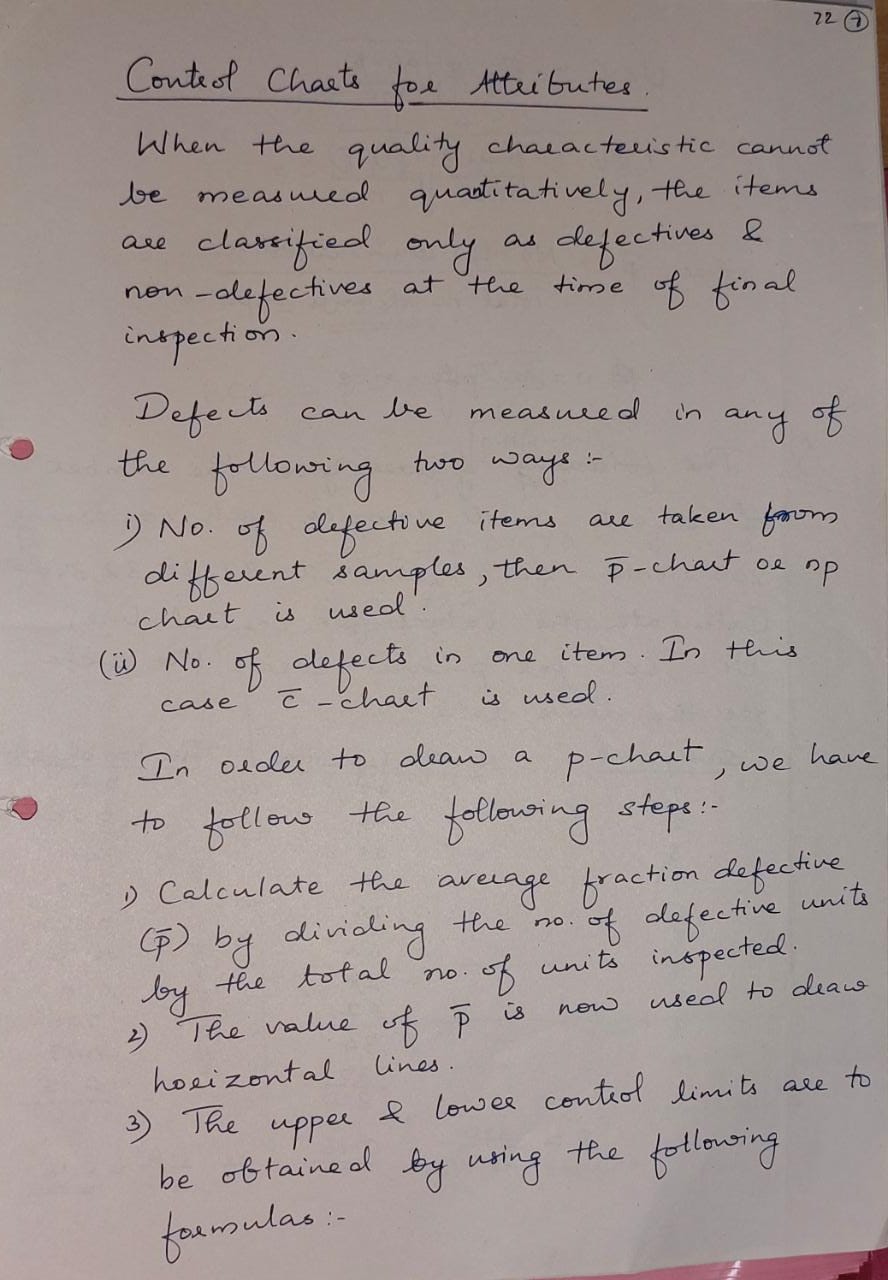 22 ⑦
Control Charts for Attributes.
When the quality characteristic cannot
be measured quantitatively, the items
are classified only as defectives &
non-defectives at the time of final
inspection.
Defects can be measured in any of
the following two ways :-
i) No. of defective items are taken from
different samples, then p̄-chart or np
chart is used.
(ii) No. of defects in one item. In this
case c̄-chart is used.
In order to draw a p-chart, we have
to follow the following steps:-
1) Calculate the average fraction defective
(p̄) by dividing the no. of defective units
by the total no. of units inspected.
2) The value of p̄ is now used to draw
horizontal lines.
3) The upper & lower control limits are to
be obtained by using the following
formulas :-